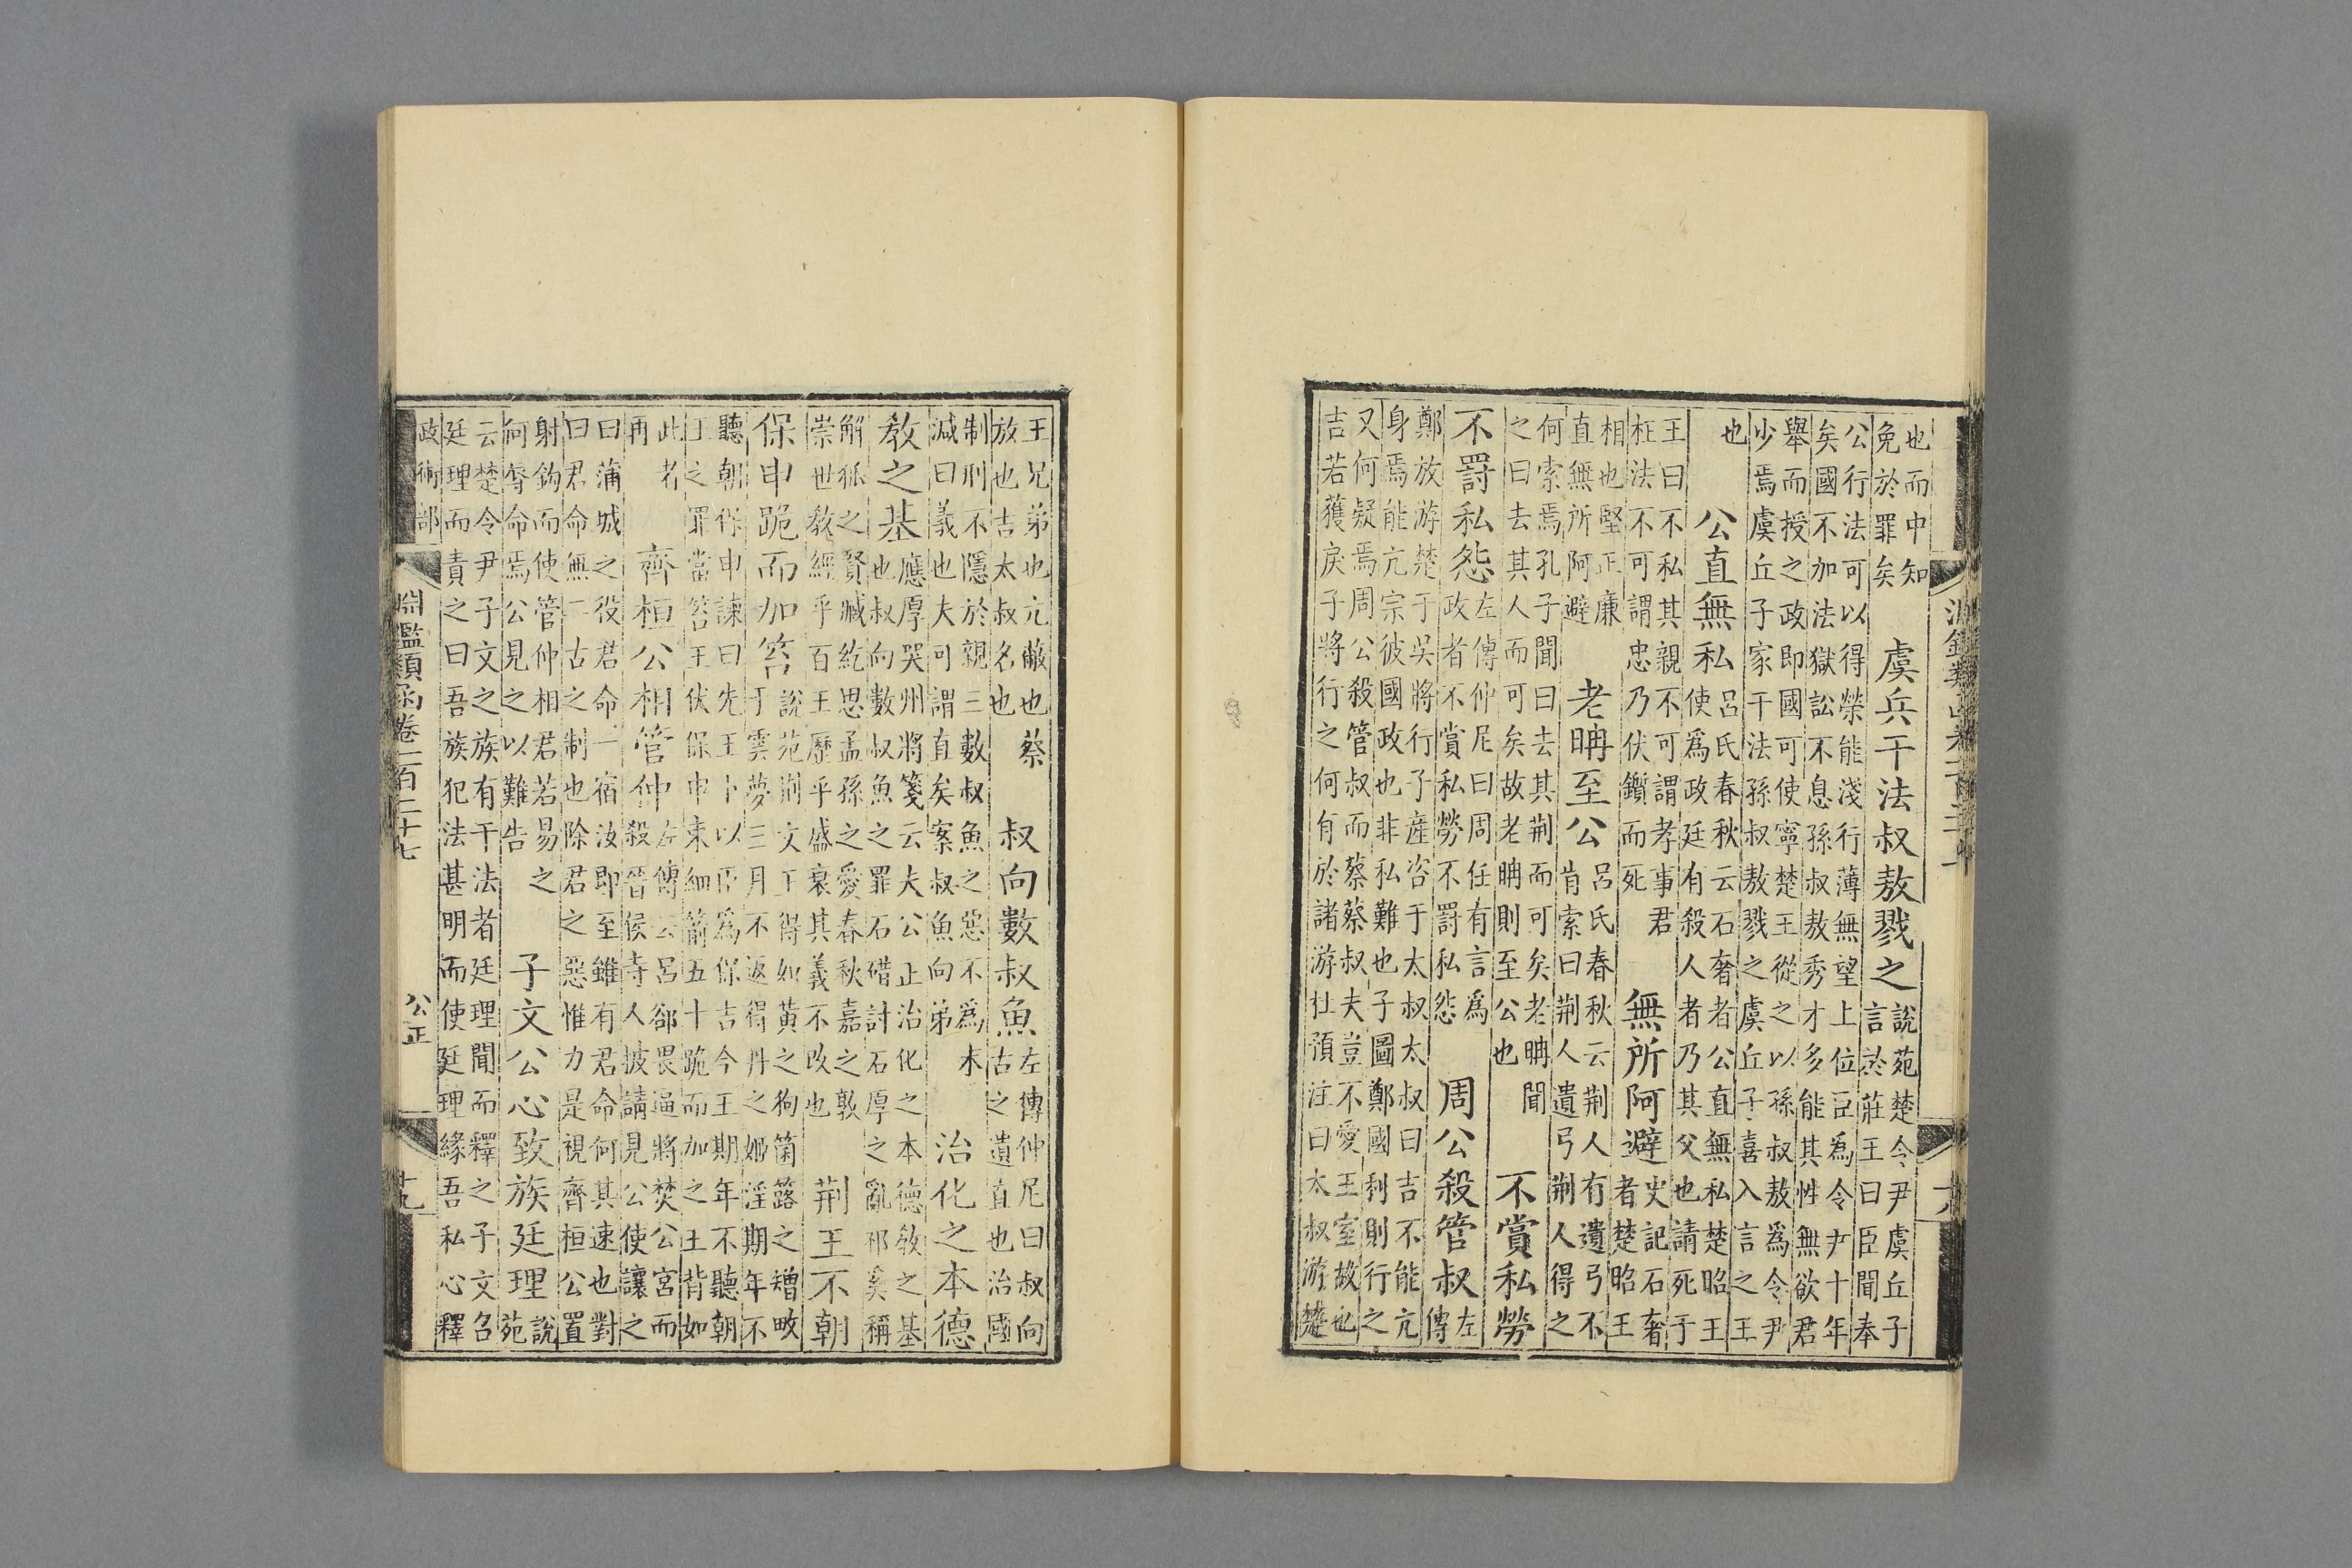 也而中知
免於罪矣
虞兵干法叔敖戮之
說苑楚令尹虞丘子
言於莊王曰臣聞奉
公行法可以得榮能淺行薄無望上位臣爲令尹十年
矣國不加法獄訟不息孫叔敖秀才多能其性無欲君
舉而授之政即國可使寧楚王從之以孫叔敖爲令尹
少焉虞丘子家干法孫叔敖戮之虞丘子喜入言之王
也
公直無私
呂氏春秋云石奢者公直無私楚昭王
使爲政廷有殺人者乃其父也請死于
王曰不私其親不可謂孝事君
枉法不可謂忠乃伏鑕而死
無所阿避
史記石奢
者楚昭王
相也堅正廉
直無所阿避
老聃至公
呂氏春秋云荆人有遺弓不
肯索曰荆人遺弓荆人得之
何索焉孔子聞曰去其荆而可矣老聃聞
之曰去其人而可矣故老聃則至公也
不賞私勞
不罰私怨
左傳仲尼曰周任有言爲
政者不賞私勞不罰私怨
周公殺管叔
左
傳
鄭放游楚于吳將行子產咨于太叔太叔曰吉不能亢
身焉能亢宗彼國政也非私難也子圖鄭國利則行之
又何疑焉周公殺管叔而蔡蔡叔夫豈不愛王室故也
吉若獲戾子將行之何有於諸游杜預注曰太叔游楚
王兄弟也亢蔽也蔡
放也吉太叔名也
叔向數叔魚
左傳仲尼曰叔向
古之遺直也治國
制刑不隱於親三數叔魚之惡不爲末
減曰義也夫可謂直矣案叔魚向弟
治化之本德
教之基
應厚哭州將箋云夫公正治化之本德敎之基
也叔向數叔魚之罪石碏討石厚之亂祁奚稱
解狐之賢臧紇思孟孫之愛春秋嘉之敦
崇世敎經乎百王歷乎盛衰其義不改也
荆王不朝
保申跪而加笞
說苑荆文王得如黃之狗箘簬之矰畋
于雲夢三月不返得丹之姬淫期年不
聽朝保申諫曰先王卜以臣爲保吉今王期年不聽朝
王之罪當笞王伏保申束細箭五十跪而加之王背如
此者
再
齊桓公相管仲
左傳云呂郤畏逼將焚公宮而
殺晉侯寺人披請見公使讓之
曰蒲城之役君命一宿汝即至雖有君命何其速也對
曰君命無二古之制也除君之惡惟力是視齊桓公置
射鈎而使管仲相君若易之
何辱命焉公見之以難告
子文公心致族廷理
說
苑
云楚令尹子文之族有干法者廷理聞而釋之子文召
廷理而責之曰吾族犯法甚明而使廷理緣吾私心釋
政術部
淵鑑類函卷一百二十七
公正
十九